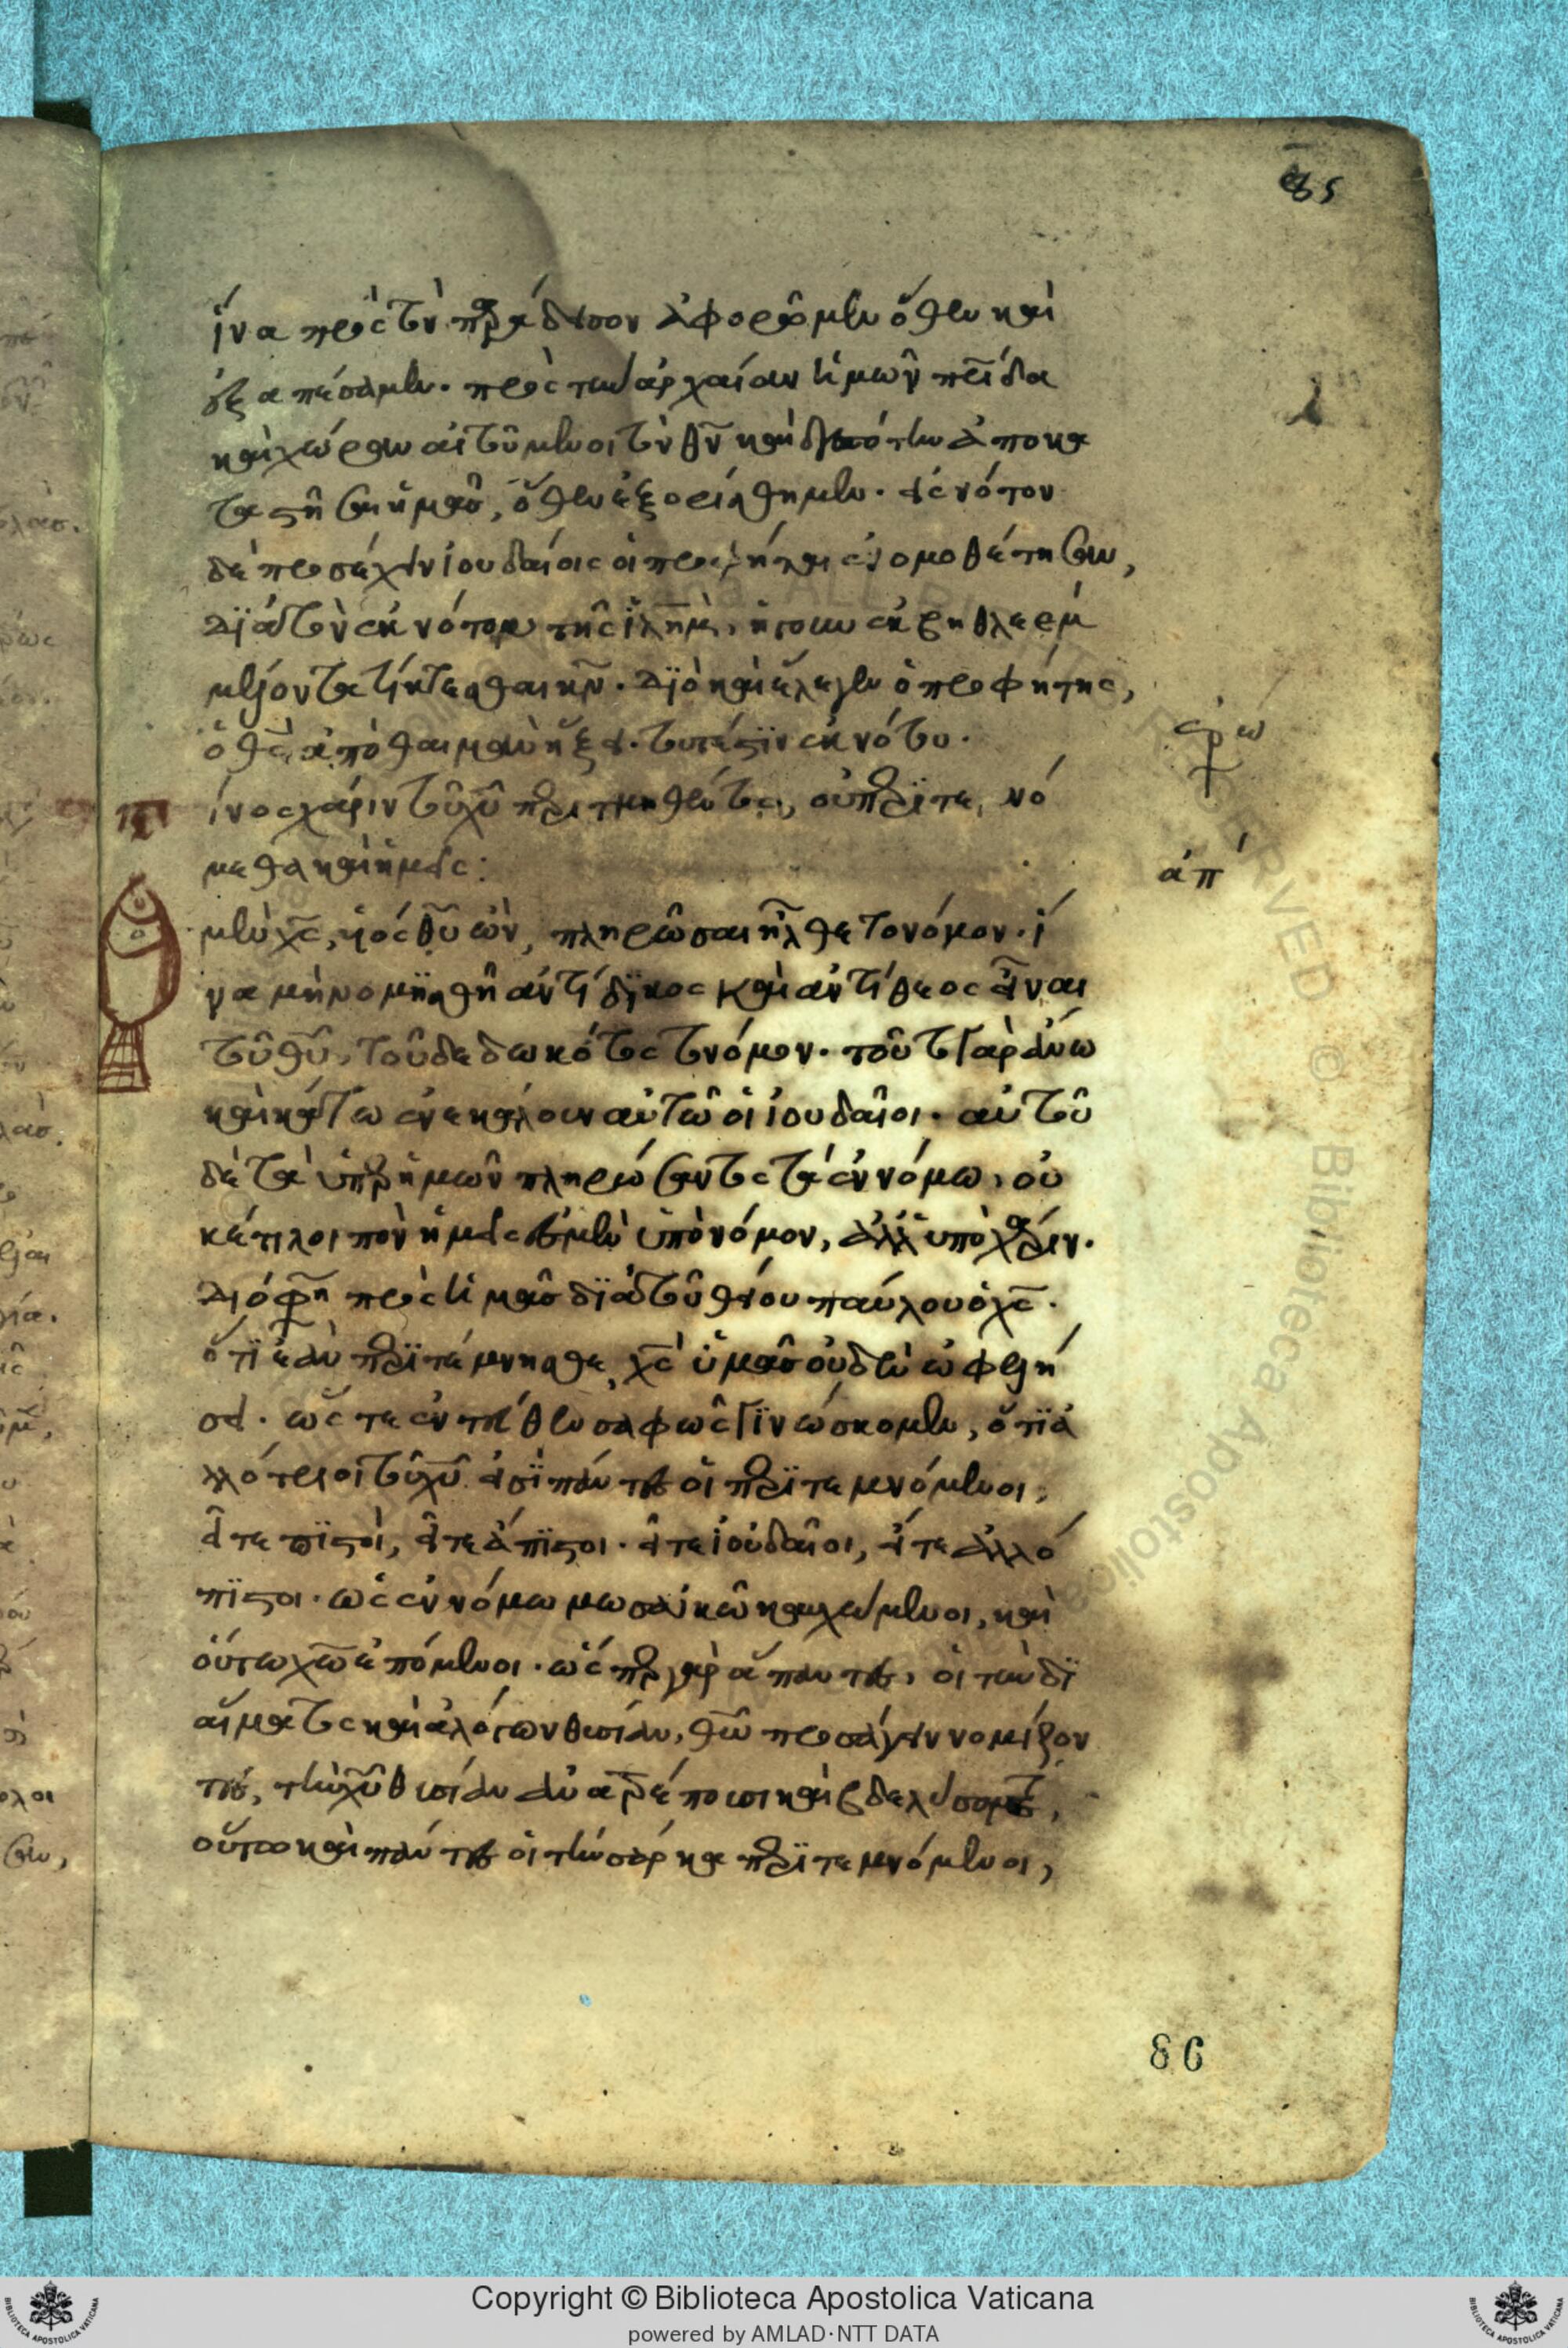 85
ἵνα πρὸς τὸν παράδεισον ἀφορῶμεν ὅθεν καὶ
ἐξεπέσαμεν. πρὸς τὴν ἀρχαίαν ἡμῶν πρίδα
καὶ χώραν αἰτούμενοι τὸν θν καὶ δεσπότην ἀποκα
ταστῆσαι ἡμᾶς, ὅθεν ἐξορίσθημεν. εἰς νότον
δὲ προσέχειν ἰουδαίοις οἱ προφῆται ἐνομοθέτησαν,
διὰ τὸν ἐκ νότου τῆς ἱλημ, ἤγουν ἐκ βηθλεὲμ
μέλλοντα τίκτεσθαι κν. διὸ καὶ ἔλεγεν ὁ προφήτης,
ὁ θς ἀπὸ θαιμὰν ἥξει. τουτέστιν ἐκ νότου.
ερω
ίνος χάριν τοῦ χυ περιτμηθέντος, οὐ περιτε νό
μεθα καὶ ἡμεῖς:
απ
μὲν χς, υἱὸς θυ ὢν, πληρῶσαι ἦλθε τὸν νόμον. ἵ
να μὴ νομισθῆ ἀντίδικος καὶ ἀντίθεος εἶναι
τοῦ θυ, τοῦ δεδωκότος τὸν νόμον. τοῦτο γὰρ ἄνω
καὶ κάτω ἐνεκάλουν αὐτῶ οἱ ἰουδαῖοι. αὐτοῦ
δὲ τὰ ὑπὲρ ἡμῶν πληρώσαντος τὰ ἐν νόμω, οὐ
κέτι λοιπὸν ἡμεῖς ἐσμὲν ὑπὸ νόμον, ἀλλ' ὑπὸ χάριν.
διό φη πρὸς ἡμᾶς διὰ τοῦ θείου παύλου ὁ χς.
ὅτι ἐὰν περιτέμνησθε, χς ὑμᾶς οὐδὲν ὠφελή
σει. ὥστε ἐντεῦθεν σαφῶς γινώσκομεν, ὅτι ἀ
λλότριοι τοῦ χυ εἰσὶ πάντες οἱ περιτεμνόμενοι,
εἴτε πιστοὶ, εἴτε ἄπιστοι. εἴτε ἰουδαῖοι, εἴτε ἀλλό
πιστοι. ὡς ἐν νόμω μωσαϊκῶ καυχώμενοι, καὶ
οὕτω χω ἑπόμενοι. ὥσπερ γὰρ ἅπαντες, οἱ τὴν δι
αἵματος καὶ ἀλόγων θυσίαν, θω προσάγειν νομίζον
τες, τὴν χυ θυσίαν ἀνατρέπουσι καὶ βδελύσσονται,
οὕτω καὶ πάντες οἱ τὴν σάρκα περιτεμνόμενοι,
86
Copyright © Biblioteca Apostolica Vaticana
powered by AMLAD·NTT DATA